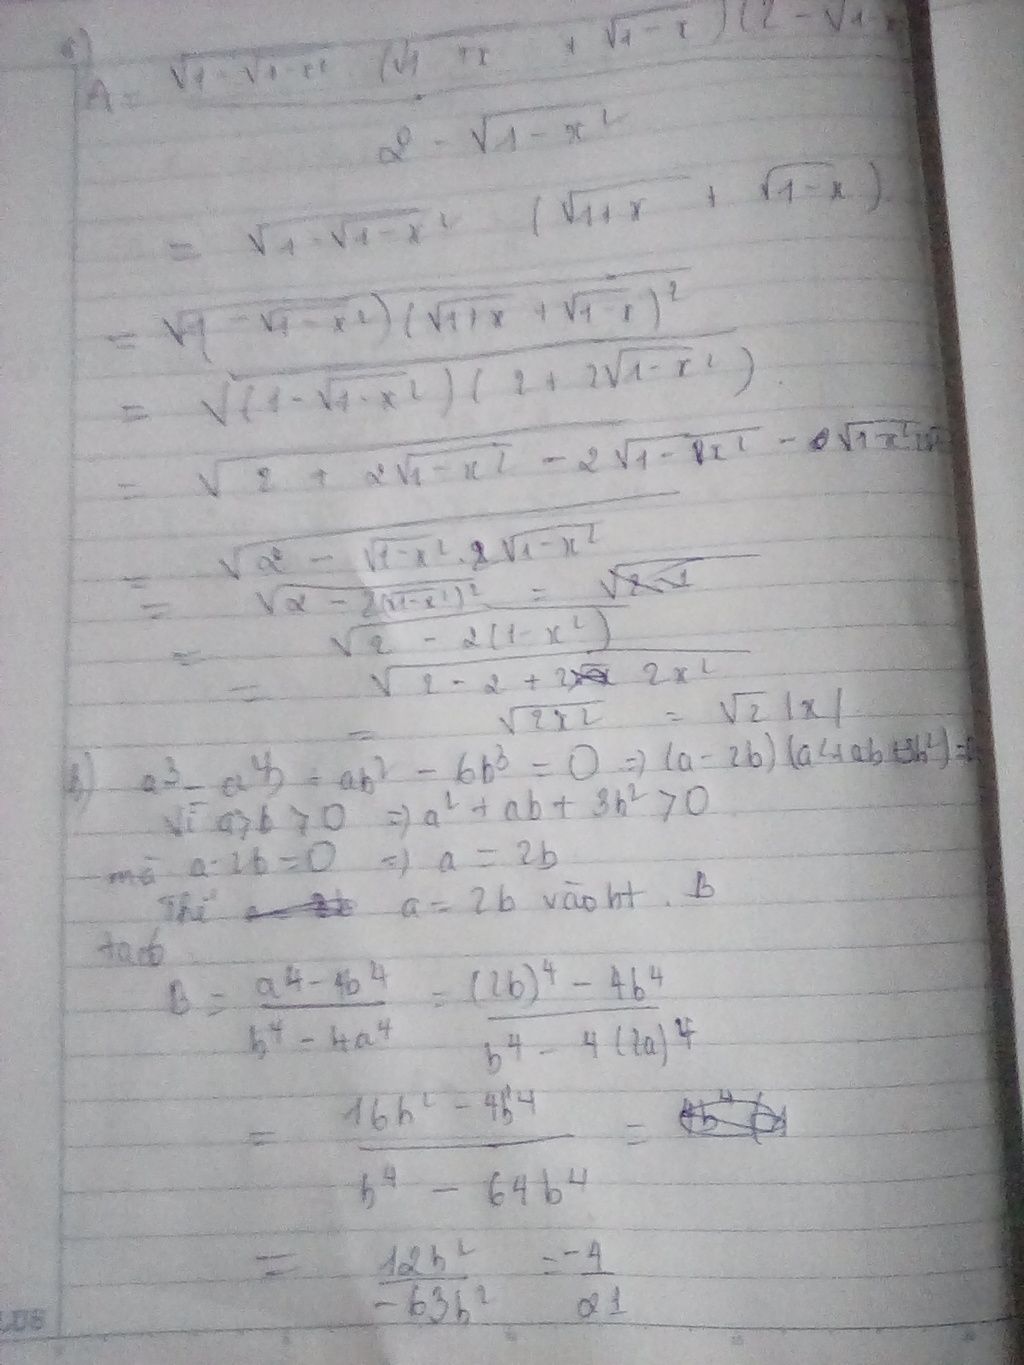 a)
A = √1-√1-x² . (√1+x + √1-x)(2-√1-x
2 - √1-x²
= √1-√1-x² (√1+x + √1-x)
= √(1-√1-x²)(√1+x + √1-x)²
= √(1-√1-x²)(2+2√1-x²)
= √2 + 2√1-x² - 2√1-x² -
= √2 - √1-x².2√1-x²
= √2-2(√1-x²)² =
= √2 - 2(1-x²)
= √2-2+2 2x²
= √2x² = √2 |x|
b) a³ - a²b = ab² - 6b³ = 0 => (a-2b)(a²+ab+3b²)=
Vì a>b>0 => a²+ab+3b²>0
mà a-2b=0 => a = 2b
Thế a=2b vào bt. B
ta có
B = a⁴-4b⁴ / b⁴-4a⁴ = (2b)⁴-4b⁴ / b⁴-4(2a)⁴
= 16b²-4b⁴ / b⁴-64b⁴ =
= 12b² / -63b² = -4 / 21